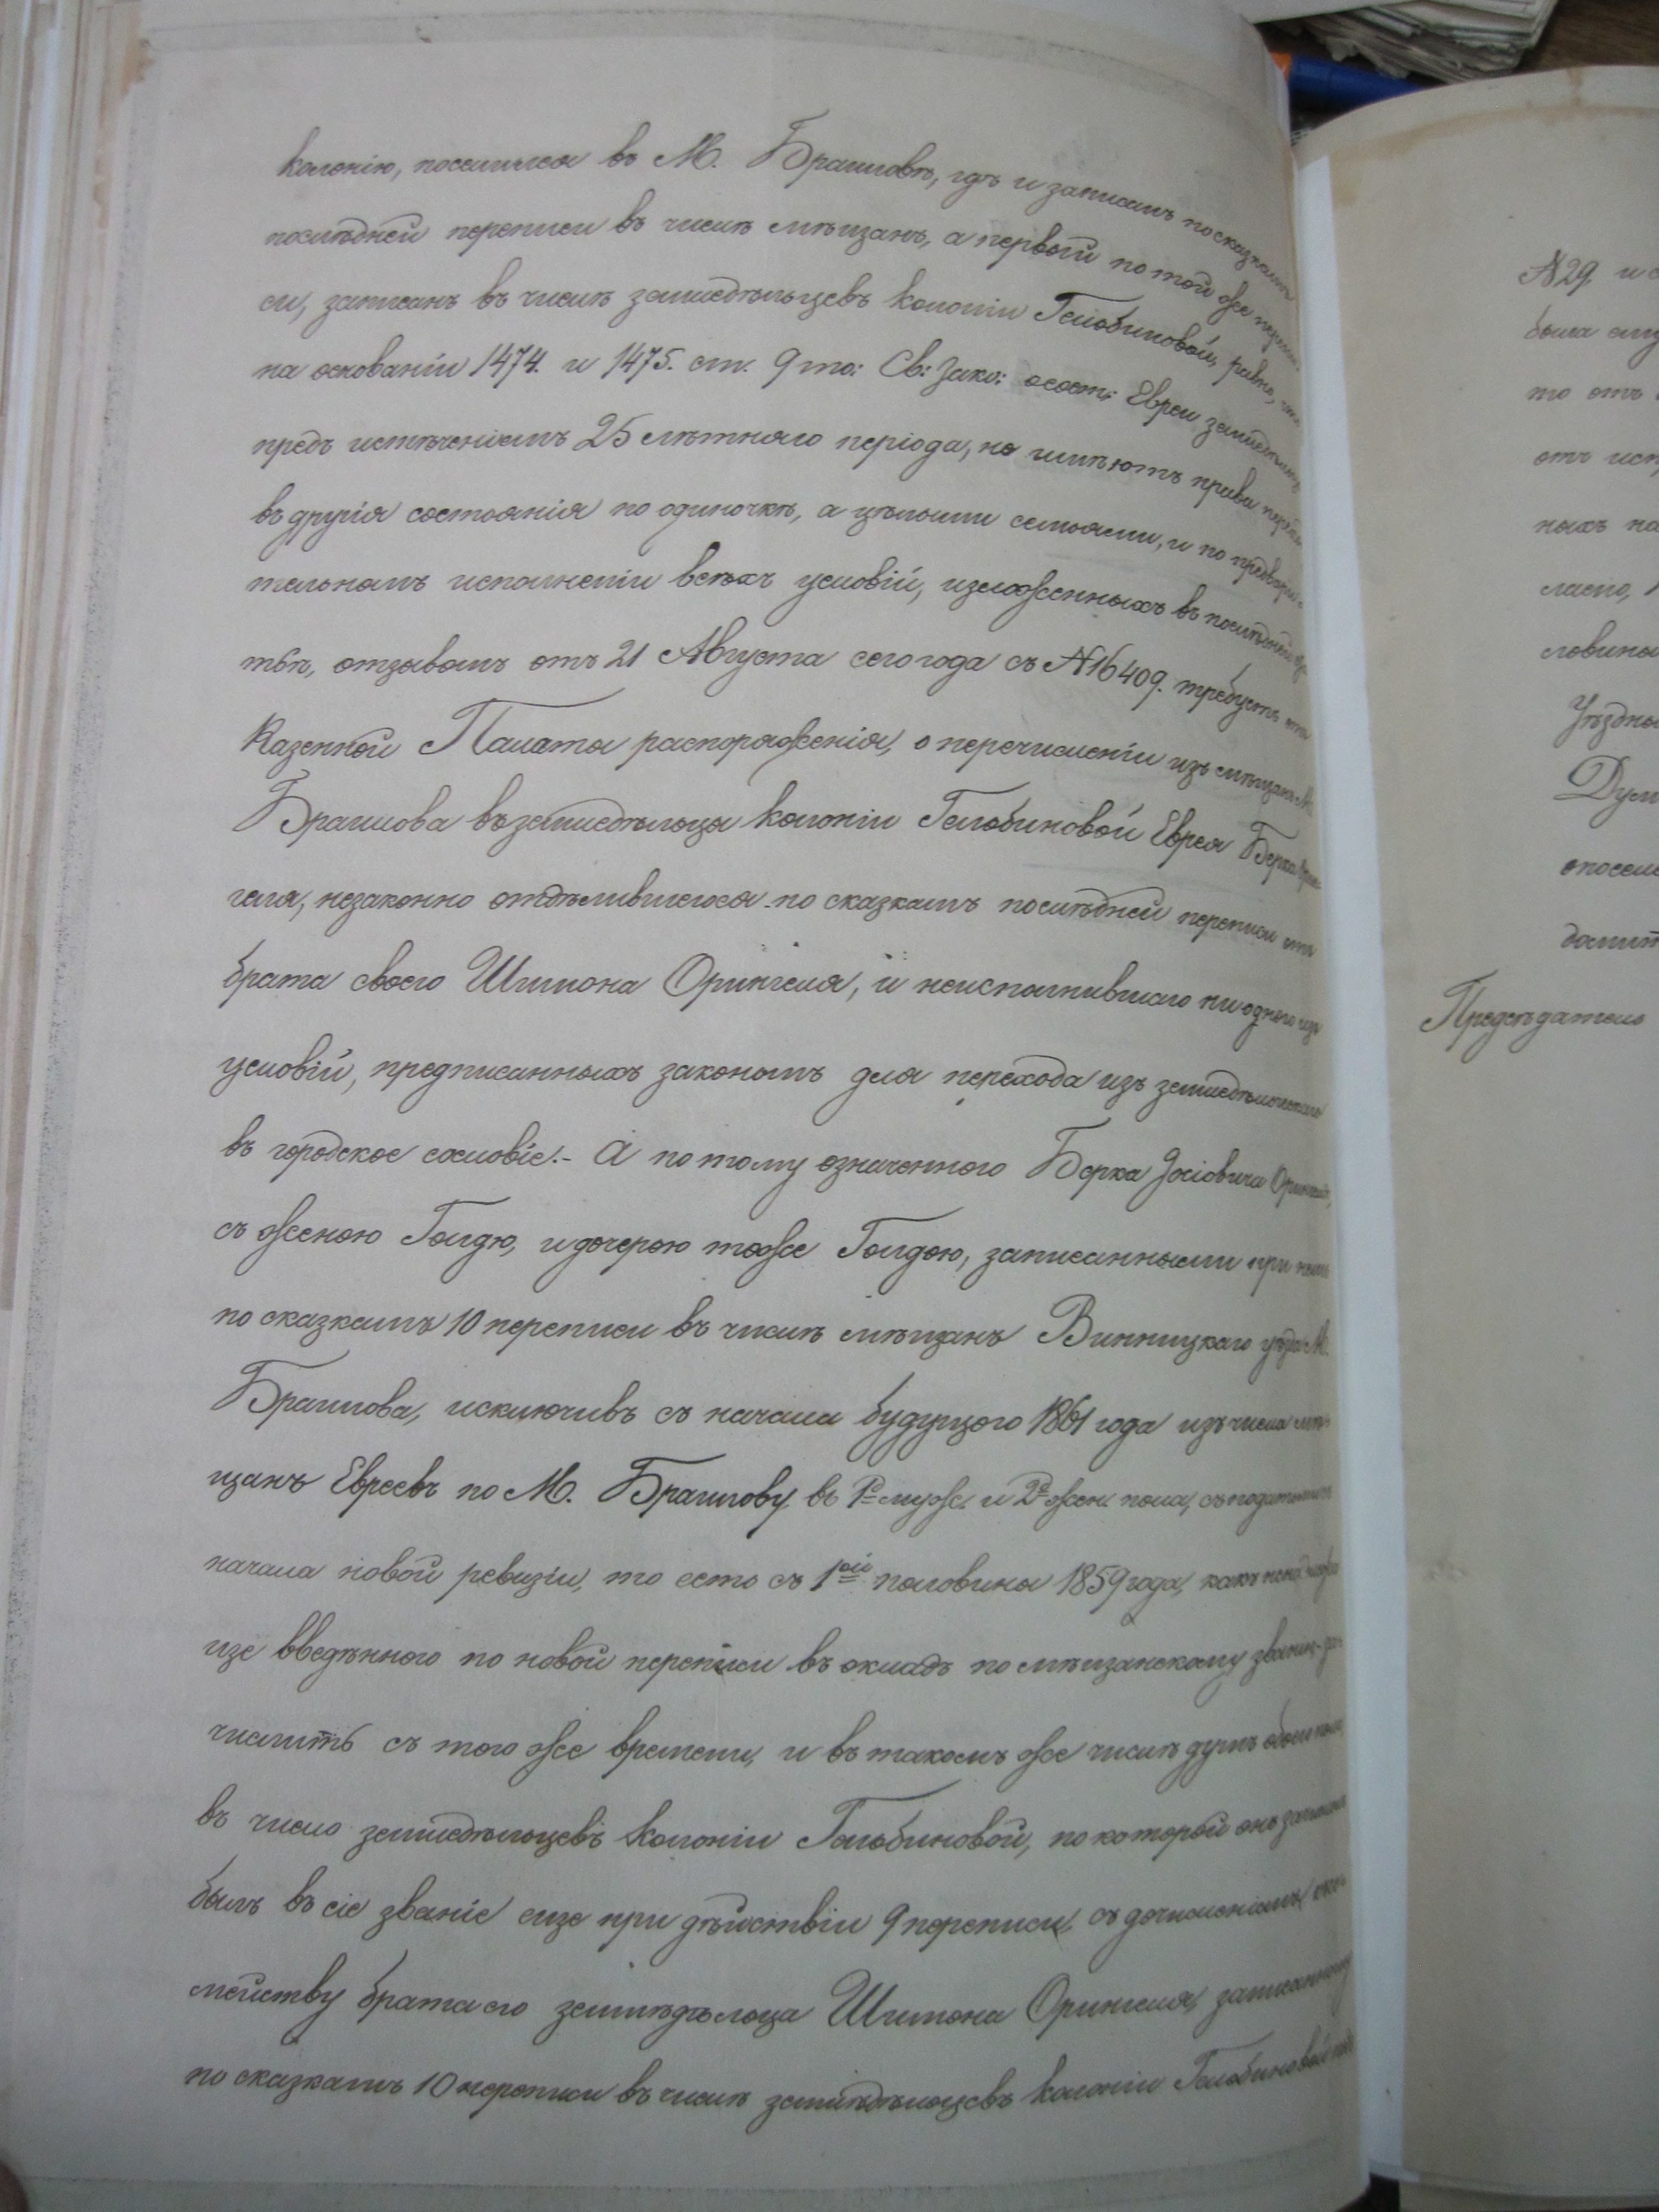 колонію, поселился въ М. Браиловѣ, гдѣ и записанъ по сказкамъ
послѣдней переписи въ числѣ мѣщанъ, а первый по той же перепи-
си, записанъ въ числѣ земледѣльцевъ колоніи Гельбиновой, равно,
на основаніи 1474. и 1475. ст. 9 то: Св: Зако: о сост: Евреи земледѣльцы
предъ истеченіемъ 25 лѣтняго періода, не имѣютъ права
въ другія состоянія по одиночкѣ, а цѣлыми семьями, и по предвари-
тельномъ исполненіи всѣхъ условій, изложенныхъ въ послѣдней
тьѣ, отзывомъ отъ 21 Августа сего года съ №16409. требуетъ отъ
Казенной Палаты распоряженія, о перечисленіи изъ мѣщанъ М.
Браилова въ земледѣльца колоніи Гельбиновой Еврея Берка
геля, незаконно отдѣлившегося по сказкамъ послѣдней переписи отъ
брата своего Шимона Орингеля, и неисполнившаго ни одного изъ
условій, предписанныхъ закономъ для перехода изъ земледѣльческаго
въ городское сословіе.- А потому означенного Берка Іосіовича Орингеля,
съ женою Голдю, и дочерью тоже Голдою, записанными при немъ
по сказкамъ 10 переписи въ числѣ мѣщанъ Винницкаго уѣзда М.
Браилова, исключивъ съ начала будущого 1861 года изъ числа мѣ-
щанъ Евреевъ по М. Браилову въ 1й муж. и 2х жен. пола, съ податьми съ
начала новой ревизіи, то есть съ 1ой половины 1859 года, какъ
ще введѣнного по новой переписи въ окладъ по мѣщанскому званію, за-
числить съ того же времени, и въ такомъ же числѣ душъ обоего пола
въ число земледѣльцевъ колоніи Гельбиновой, по которой онъ записанъ
былъ въ сіе званіе еще при дѣйствіи 9 переписи, съ дочисленіемъ
мейству брата его земледѣльца Шимона Орингеля, записанному
по сказкамъ 10 переписи въ числѣ земледѣльцевъ колоніи Гельбиновой
№29. и
была
то отъ
отъ
ныхъ на
ласно,
ловины
Уѣздно
Дум
Предсѣдатель